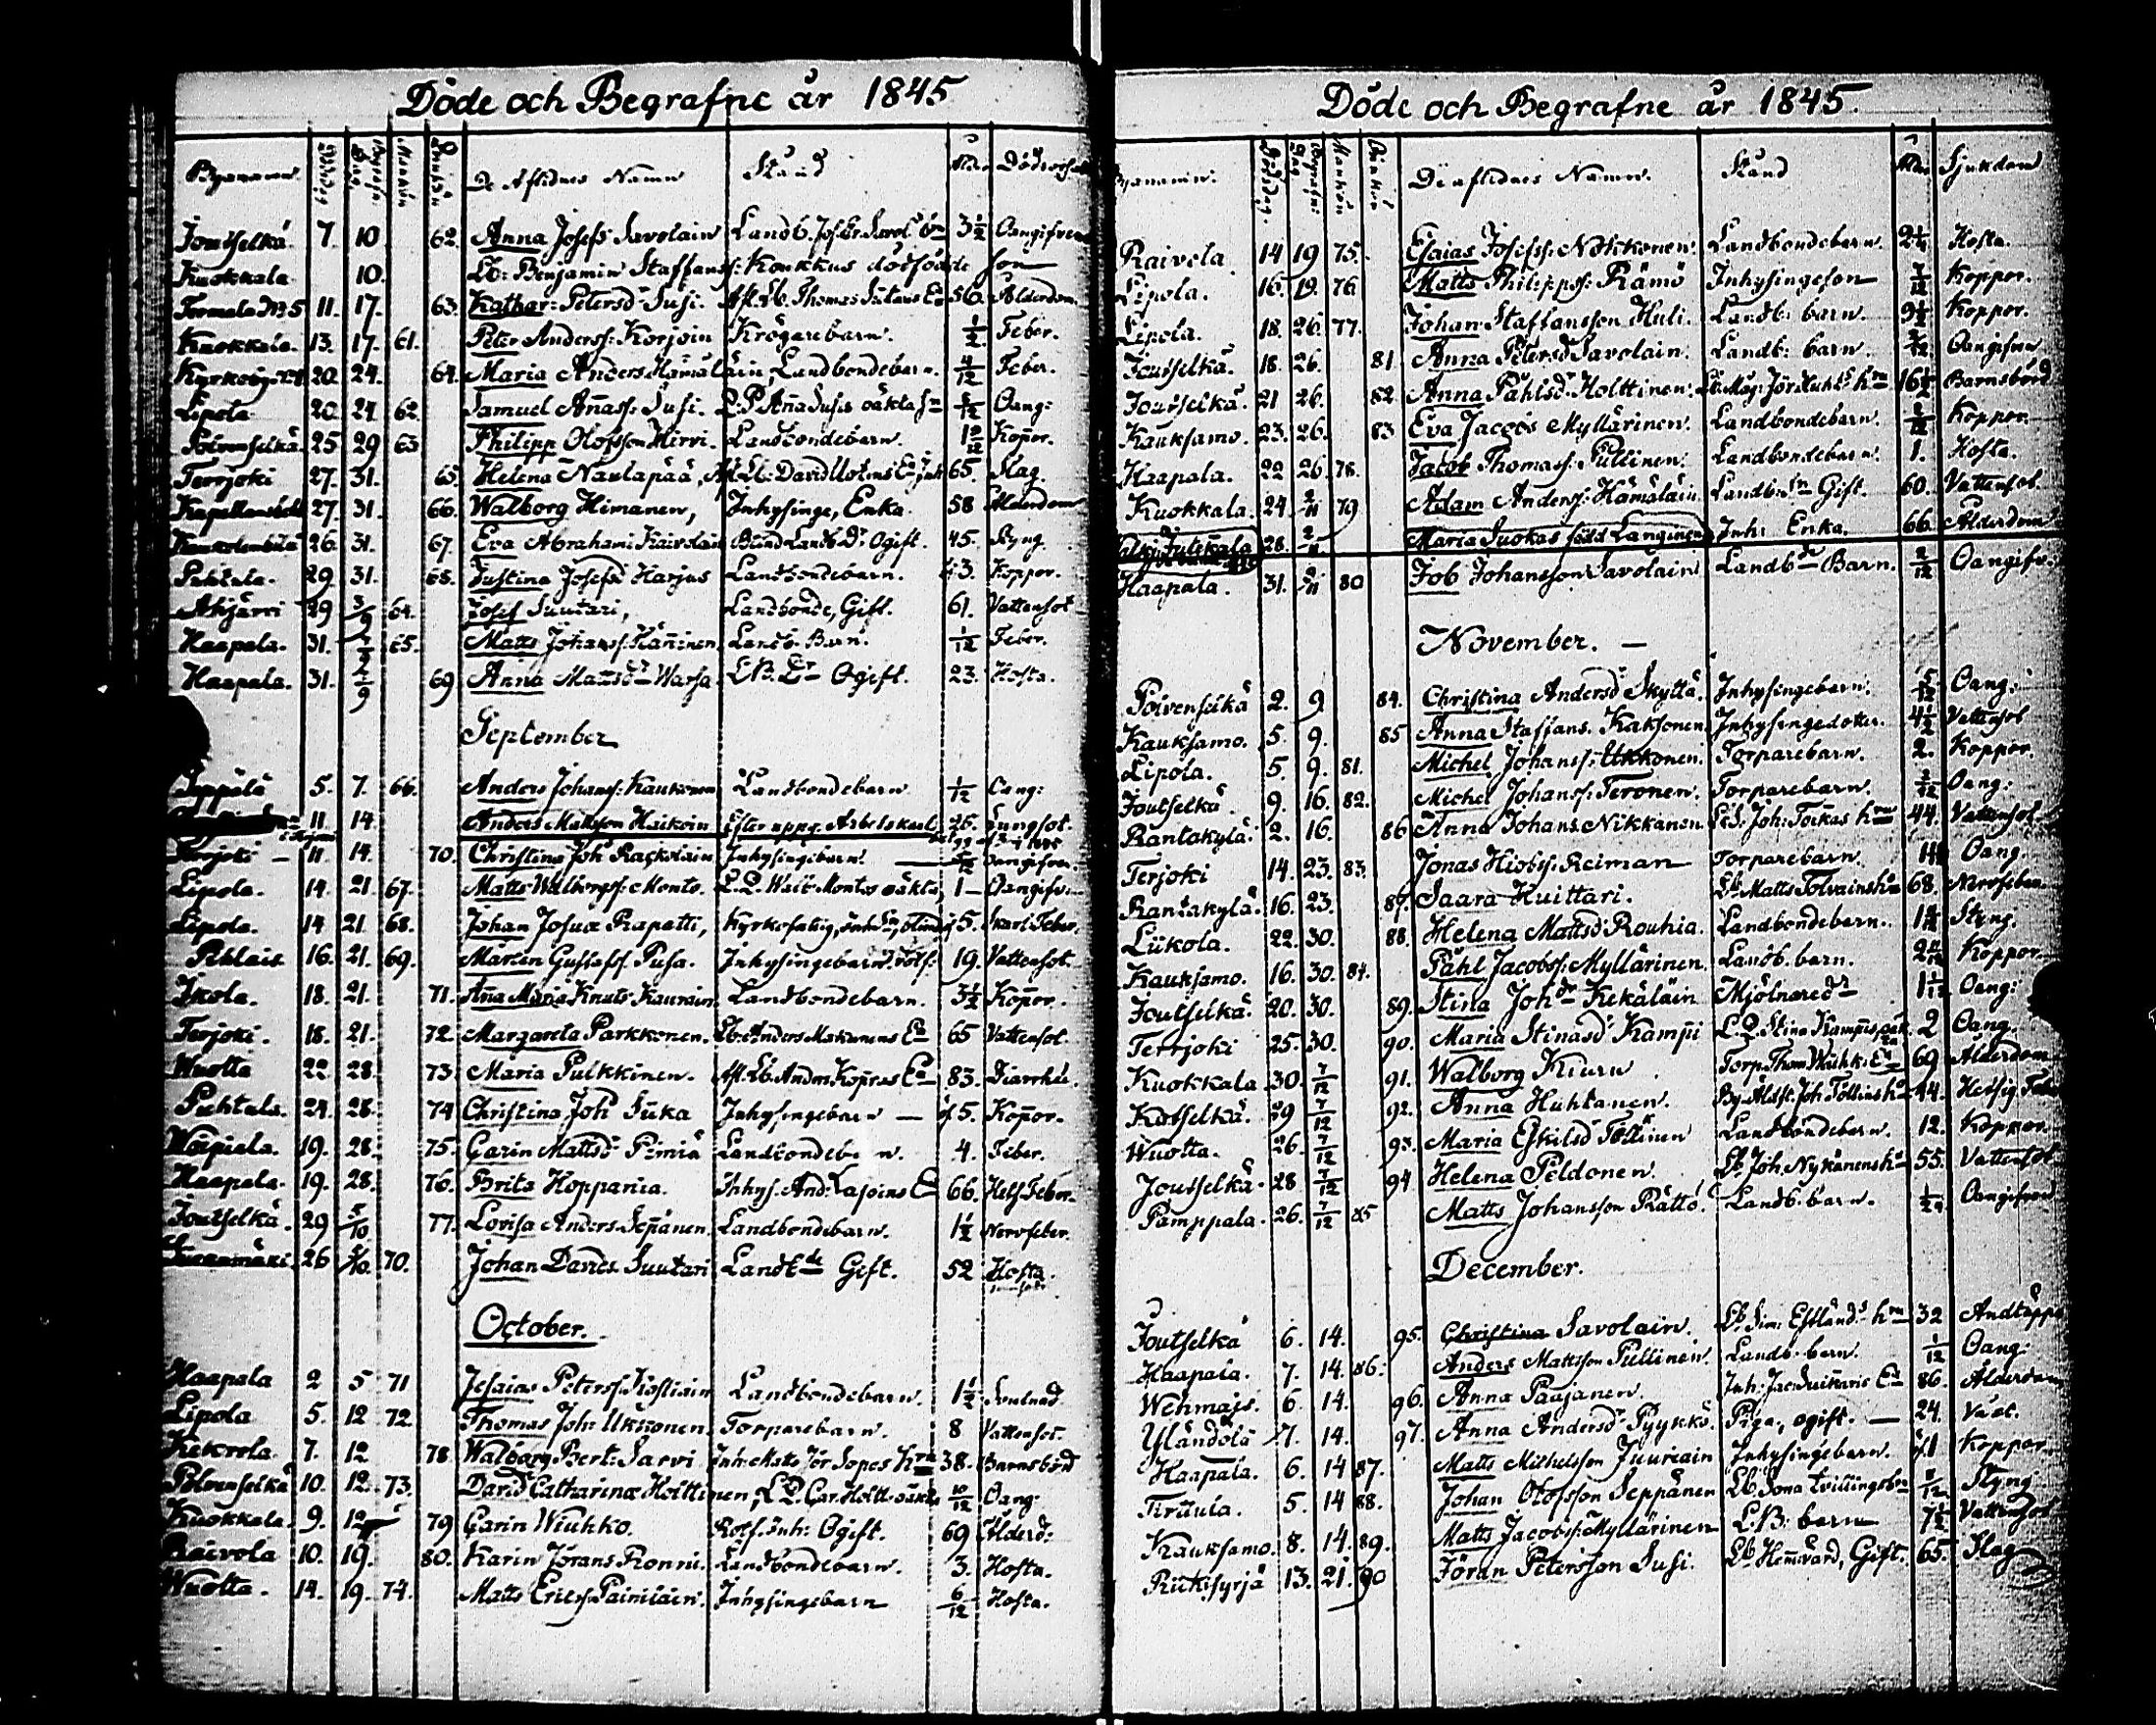 Döde och Begrafne år 1845
Bynamn Dödsdag Begrafn: Dag Mankön Qvinkön De Aflidnes Namn Stånd Ålder Dödsorsak
Joutselkä 7. 10 62. Anna Josefsd Savolain Landb. 3 1/2 Oangifven
Kuokkala 10. Lb: Benjamin Staffanss: Koukkus dödfödde son
Tormala No 5 11. 17. 63. Kathar: Petersd Susi. Afl. Lb. Thomas Ea 56. Ålderdom
Kuokkala. 13. 17. 61. Peter Anderss: Korjoin Krögarebarn. 1/2 Feber.
20. 24. 64. Maria Anders Hämäläin, Landbondebarn. 4/12 Feber.
Lipola 20. 24. 62. Samuel Annass: Susi. L. P. Anna Susis oäkta sn 5/12 Oang:
Polvenselkä 25 29 63 Philipp Olofsson Hirvi. Landbondebarn. 1 Koppor.
Terrjoki 27. 31. 65. Helena Naulapää, Afl. Lb: David 65. Slag.
27. 31. 66. Walborg Himanen, Inhysinge, Enka. 58 Ålderdom
26. 31. 67. Eva Abrahams Kaivolain Blind Landb. Dr Ogift. 45. Styng.
Puhtula. 29. 31. 68. Justina Josefsd Harjus Landbondebarn. 3. Koppor.
Ahjärvi 29 3/9 64. Josef Suutari, Landbonde, Gift. 61. Vattensot
Haapala. 31. 7/9 65. Matts Johanss: Hänninen Landb. Barn. 1/12 Feber.
Haapala. 31. 7/9 69 Anna Mattsdr Warsa L.B. Dr Ogift. 23. Hosta.
September
Seppälä 5. 7. 66. Anders Johanss: Kaukonen Landbondebarn. 1/12 Oang:
11. 14. Anders Mattsson Haikoin Efter uppg. Arbetskarl 26. Lungsot.
Terrjoki 11. 14. 70. Christina Joh Rackolain Inhysingebarn. Oangifven
Lipola. 14. 21. 67. Matts Walborgss: Monto. L. P. Walb. Montos oäkta 1 Oangifv:
Lipola. 14 21. 68. Johan Josua Rapatti, Kyrkofattig, 5. Skarl. Feber.
16. 21. 69. Mårten Gustafss. Pusa. Inhysingebarn. 19. Vattensot.
Ikola. 18. 21. 71. Anna Maria Knuts Kaurain. Landbondebarn. 3 1/2 Koppor.
Terjoki. 18. 21. 72. Margareta Parkkonen. Lb: Anders Makonens Ea 65 Vattensot.
Wuotta 22. 28. 73. Maria Pulkkinen. Afl. Lb. Anders Koppras Ea 83. Diarrhé.
Puhtula. 24. 28. 74. Christina Joh Suka Inhysingebarn 5. Koppor.
19. 28. 75. Carin Mattsd Pimiä Landbondebarn. 4. Feber.
Haapala. 19. 28. 76. Brita Hoppania. Inhys. And: Lasoins E 66. Hets. Feber.
Joutselkä. 29 5/10 77. Lovisa Anders. Seppänen. Landbondebarn. 1 1/2 Nervfeber.
26 5/10. 70. Johan Davids Suutari Landbde Gift. 52 Hosta.
October.
Haapala 2 5 71 Jesaias Peterss: Landbondebarn. 1 1/2
Lipola 5. 12 72. Thomas Joh: Ukkonen. Torparebarn. 8 Vattensot.
Kekrola. 7. 12 78. Walborg Bert: Sarvi Inh: Matts Jör Sopas hru 38. Barnsbörd
Polvenselkä 10. 12. 73. David Catharinæ Holttinen, L. P. Car. Holtt. oäkta 10/12 Oang:
Kuokkala. 9. 12 79 Carin Wiuhko. Rotf. Inh: Ogift. 69 Ålderd:
Raivola 10. 19. 80. Karin Jörans Ronni. Landbondebarn. 3. Hosta.
Wuotta. 14. 19. 74. Matts Ericss: Painilain. Inhysingebarn 6/12 Hosta.
Döde och Begrafne år 1845.
Bynamn. Dödsdag. Begrafn: Dag Mankön Qvinkön De aflidnes Namn. Stånd Ålder Sjukdom
Raivola 14 19 75. Esaias Josefss: Notkkonen. Landbondebarn. 2 1/4 Hosta.
Lipola. 16. 19. 76. Matts Philippss: Rämö Inhysingeson 7/12 Koppor.
Lipola. 18. 26. 77. Johan Staffansson Huli. Landb: barn. 9 1/2 Koppor.
Joutselkä. 18. 26. 81. Anna Petersd Savolain. Landb: barn. 2/12 Oangifven
Joutselkä. 21 26. 82. Anna Påhlsd. Holttinen. hru 16 1/2 Barnsbörd
Kauksamo. 23. 26. 83 Eva Jacobs Myllärinen. Landbondebarn. Koppor.
Haapala. 22 26 78. Jacob Thomass: Pullinen. Landbondebarn. 1. Hosta.
Kuokkala. 24 2/11 79 Adam Anderss: Hämäläin Gift. 60. Vattensot.
28. 2/11 Maria Suokas född Langinen Inh: Enka. 66. Ålderdom
Haapala. 31. 9/11 80 Job Johansson Savolain Landbde Barn. 2/12 Oangifv:
November.
Polvenselkä 2. 9. 84. Christina Andersd Skyttä. Inhysingebarn. 5/12 Oang:
Kauksamo. 5. 9. 85 Anna Staffans. Kaksonen Inhysingedotter. 4 1/2 Vattensot
Lipola. 5. 9. 81. Michel Johanss: Ukkonen. Torparebarn. 2. Koppor.
Joutselkä. 9. 16. 82. Michel Johanss: Teronen. Torparebarn. 2/12 Oang:
Rantakylä. 2. 16. 86 Anna Johans. Nikkanen. Joh: Toikas hru 44. Vattensot
Terjoki 14. 23. 83. Jonas Hiobss: Reiman Torparebarn. Oang.
Rantakylä. 16. 23. 87. Saara Huittari. Lb Matts Tolvains 68. Nervfeber
Liikola. 22. 30. 88. Helena Mattsd Rouhia. Landbondebarn. Styng.
Kauksamo. 16. 30. 84. Påhl Jacobss: Myllärinen. Landb. barn. Koppor
Joutselkä. 20. 30. 89. Stina Johdr Kekäläin Mjölnaredr 1 1/12 Oang:
Terrjoki 25. 30. 90. Maria Stinasd Kamppi L. P. Stina Kamppis 2 Oang.
Kuokkala 30. 7/12 91. Walborg Kiuru Torp. Thom Wiuhk: Ea 69 Ålderdom
Kotselkä. 29 7/12 92. Anna Huhtanen. Joh Töllins 44. Hetsig Feber
Wuotta. 26. 7/12 93. Maria Eskilsd Töllinen Landbondebarn. 12. Koppor
Joutselkä. 28 7/12 94 Helena Peldonen. Lb Joh. Nykänens 55. Vattensot
Pamppala. 26. 7/12 85 Matts Johansson Rättö. Landb. barn. Oangifven
December.
Joutselkä 6. 14. 95. Christina Savolain. Lb Sim: Estlands hru 32 Andtäppa
Haapala. 7. 14. 86. Anders Mattsson Pullinen. Landb. barn. 1/12 Oang:
Wehmais. 6. 14. 96. Anna Paajanen. Ea 86. Ålderdom
Yländölä 7. 14. 97. Anna Andersd Pyykkö. Piga, ogift. 24.
Haapala. 6. 14 87. Matts Michelsson Juuriain Inhysingebarn. 1 Koppor
Tiruula. 5. 14 88. Johan Olofsson Seppänen Styng
Kauksamo. 8. 14. 89. Matts Jacobss: Myllärinen L. B: barn 7 1/2 Vattensot
13. 21. 90 Jöran Petersson Susi. Lb Hemvärd, Gift. 65. Slag